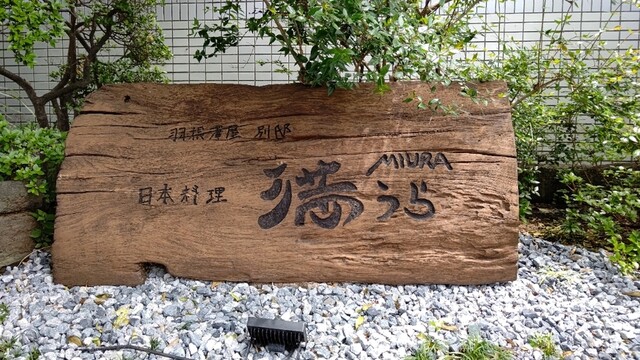 羽根澤屋 別邸
日本料理
満うら
MIURA